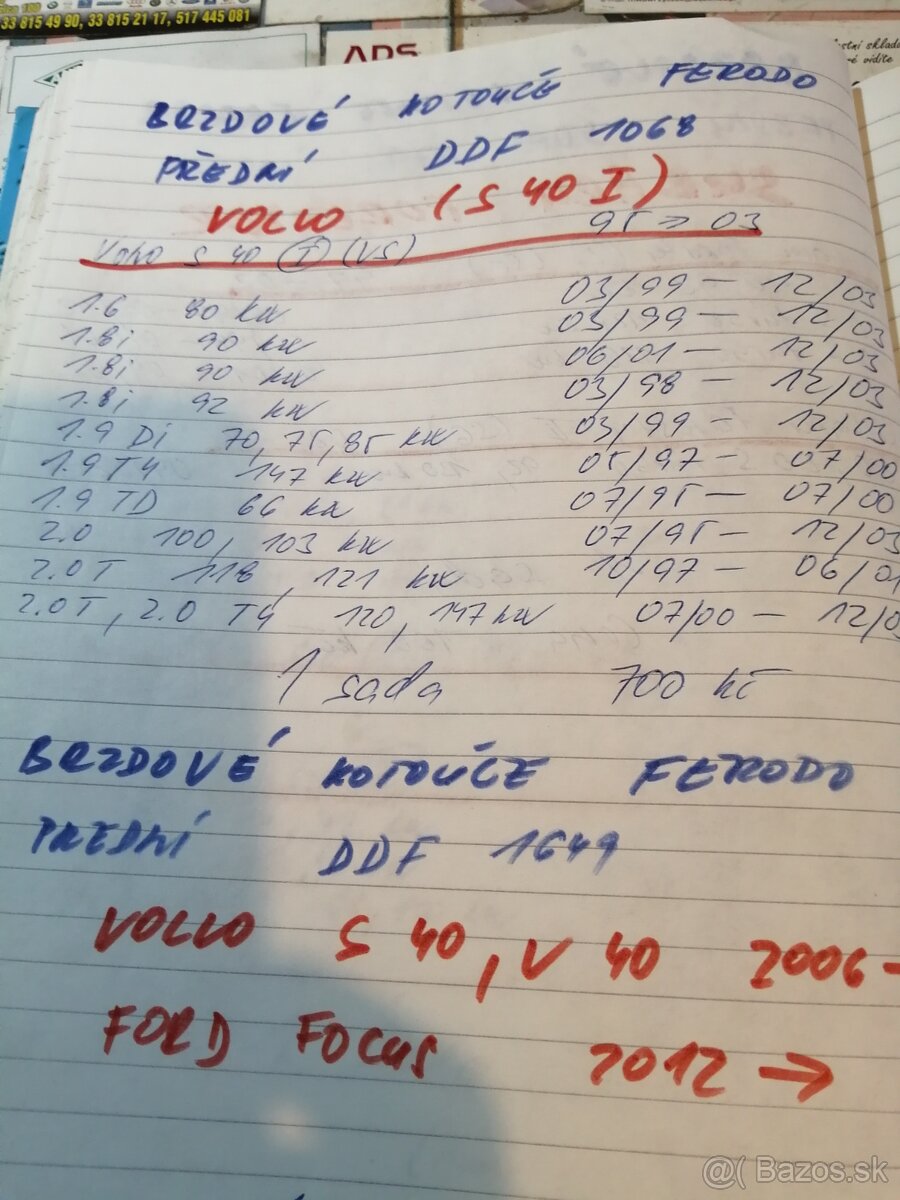 33 815 49 90, 33 815 21 17, 517 445 081
ADS
BRZDOVÉ KOTOUČE FERODO
PŘEDNÍ DDF 1068
VOLVO (S 40 I)
95 → 03
Volvo S 40 I (VS)
1.6 80 kw 03/99 – 12/03
1.8i 90 kw 03/99 – 12/03
1.8i 90 kw 06/01 – 12/03
1.8i 92 kw 03/98 – 12/03
1.9 Di 70, 75, 85 kw 03/99 – 12/03
1.9 T4 147 kw 05/97 – 07/00
1.9 TD 66 kw 07/95 – 07/00
2.0 100, 103 kw 07/95 – 12/03
2.0T 118, 121 kw 10/97 – 06/01
2.0T, 2.0 T4 120, 147 kw 07/00 – 12/0
1 sada 700 kč
BRZDOVÉ KOTOUČE FERODO
PŘEDNÍ DDF 1649
VOLVO S 40, V 40 2006 –
FORD FOCUS 2012 →
@( Bazos.sk